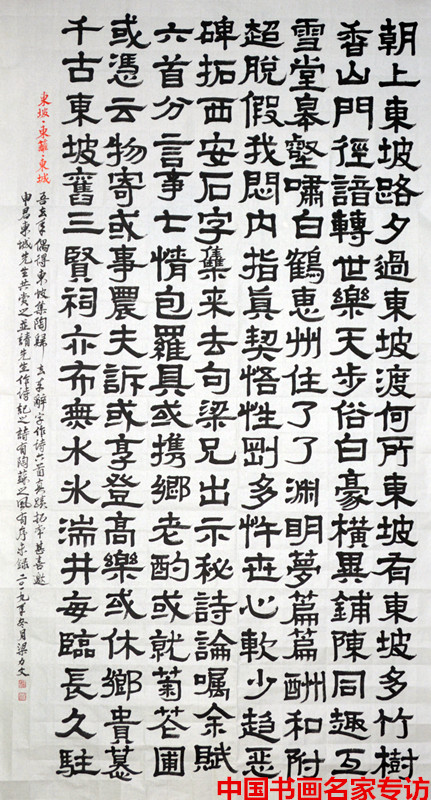 朝上東坡路夕過東坡渡何所東坡有東坡多竹樹
香山門徑諳轉世樂天步俗白豪橫異鋪陳同趣互
雪堂皋壑嘯白鶴惠州住了了淵明夢篇篇酬和附
超脫假我悶内指真契悟性剛多忤世心軟少趋惡
碑拓西安石字集来去句梁兄出示秘詩論囑余賦
六首分言事七情包羅具或携鄉老酌或就菊花圃
或憑云物寄或事農夫訴或享登高樂或休鄉貴墓
千古東坡舊三賢祠亦布無水氷湍井每臨長久駐
東坡·東華·東城
吾去年偶得東坡集陶歸去来辭字作詩六首真蹟拓本甚喜邀
申君東城先生共賞之並請先生作詩記之詩有陶蘇之風有序未録二〇一九年冬月梁力文
中国书画名家专访